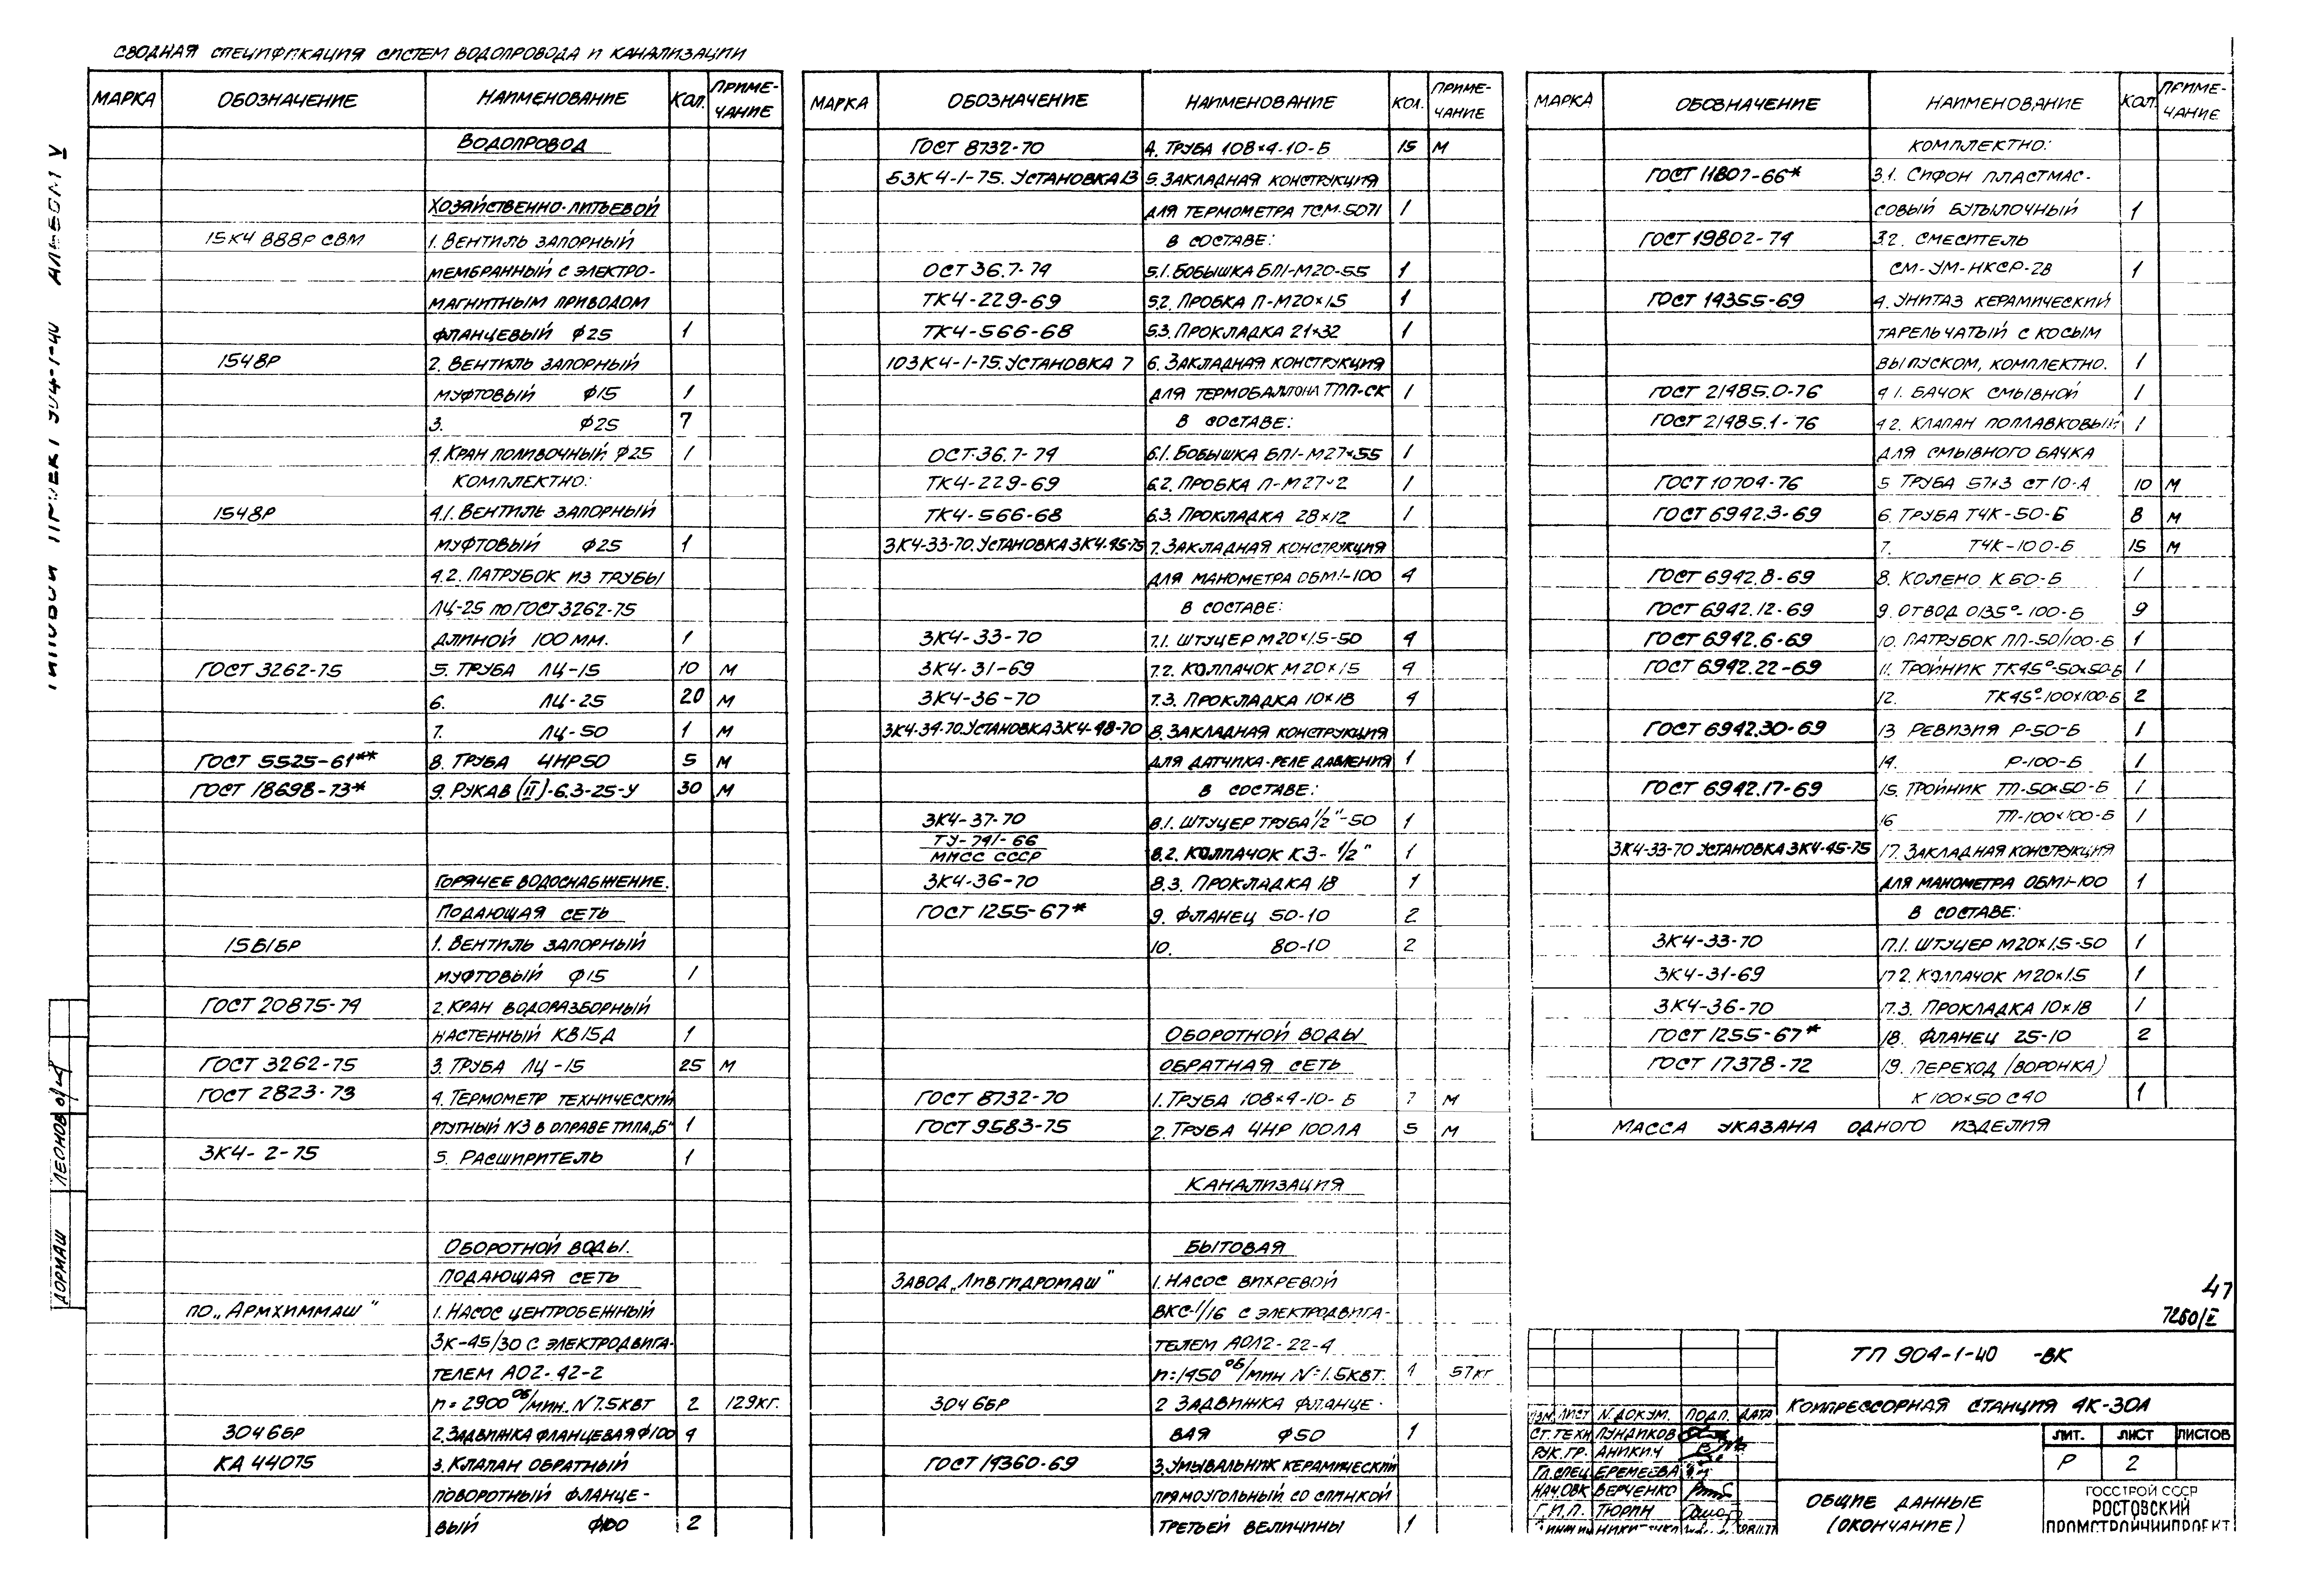 СВОДНАЯ СПЕЦИФИКАЦИЯ СИСТЕМ ВОДОПРОВОДА И КАНАЛИЗАЦИИ
МАРКА ОБОЗНАЧЕНИЕ НАИМЕНОВАНИЕ КОЛ. ПРИМЕ-
ЧАНИЕ
ВОДОПРОВОД
ХОЗЯЙСТВЕННО-ПИТЬЕВОЙ
15КЧ 888Р СВМ 1. ВЕНТИЛЬ ЗАПОРНЫЙ
МЕМБРАННЫЙ С ЭЛЕКТРО-
МАГНИТНЫМ ПРИВОДОМ
ФЛАНЦЕВЫЙ Ф25 1
15Ч8Р 2. ВЕНТИЛЬ ЗАПОРНЫЙ
МУФТОВЫЙ Ф15 1
3. Ф25 7
4. КРАН ПОЛИВОЧНЫЙ Ф25 1
КОМПЛЕКТНО:
15Ч8Р 4.1. ВЕНТИЛЬ ЗАПОРНЫЙ
МУФТОВЫЙ Ф25 1
4.2. ПАТРУБОК ИЗ ТРУБЫ
ЛЦ-25 ПО ГОСТ 3262-75
ДЛИНОЙ 100 ММ. 1
ГОСТ 3262-75 5. ТРУБА ЛЦ-15 10 М
6. ЛЦ-25 20 М
7. ЛЦ-50 1 М
ГОСТ 5525-61** 8. ТРУБА ЧНР50 5 М
ГОСТ 18698-73* 9. РУКАВ (II)-6.3-25-У 30 М
ГОРЯЧЕЕ ВОДОСНАБЖЕНИЕ.
ПОДАЮЩАЯ СЕТЬ
15Б1БР 1. ВЕНТИЛЬ ЗАПОРНЫЙ
МУФТОВЫЙ Ф15 1
ГОСТ 20875-74 2. КРАН ВОДОРАЗБОРНЫЙ
НАСТЕННЫЙ КВ15Д 1
ГОСТ 3262-75 3. ТРУБА ЛЦ-15 25 М
ГОСТ 2823-73 4. ТЕРМОМЕТР ТЕХНИЧЕСКИЙ
РТУТНЫЙ N3 В ОПРАВЕ ТИПА „Б" 1
ЗК4-2-75 5. РАСШИРИТЕЛЬ 1
ОБОРОТНОЙ ВОДЫ.
ПОДАЮЩАЯ СЕТЬ
ПО „АРМХИММАШ" 1. НАСОС ЦЕНТРОБЕЖНЫЙ
3К-45/30 С ЭЛЕКТРОДВИГА-
ТЕЛЕМ АО2-42-2
n=2900 об/мин. N 7.5КВТ 2 129КГ.
30Ч6БР 2. ЗАДВИЖКА ФЛАНЦЕВАЯ Ф100 4
КА 44075 3. КЛАПАН ОБРАТНЫЙ
ПОВОРОТНЫЙ ФЛАНЦЕ-
ВЫЙ Ф100 2
МАРКА ОБОЗНАЧЕНИЕ НАИМЕНОВАНИЕ КОЛ. ПРИМЕ-
ЧАНИЕ
ГОСТ 8732-70 4. ТРУБА 108×4-10-Б 15 М
5ЗК4-1-75. УСТАНОВКА 13 5. ЗАКЛАДНАЯ КОНСТРУКЦИЯ
ДЛЯ ТЕРМОМЕТРА ТСМ-5071 1
В СОСТАВЕ:
ОСТ 36.7-74 5.1. БОБЫШКА БП1-М20-55 1
ТК4-229-69 5.2. ПРОБКА П-М20×1.5 1
ТК4-566-68 5.3. ПРОКЛАДКА 21×32 1
10ЗК4-1-75. УСТАНОВКА 7 6. ЗАКЛАДНАЯ КОНСТРУКЦИЯ
ДЛЯ ТЕРМОБАЛЛОНА ТПП-СК 1
В СОСТАВЕ:
ОСТ.36.7-74 6.1. БОБЫШКА БП1-М27×55 1
ТК4-229-69 6.2. ПРОБКА П-М27×2 1
ТК4-566-68 6.3. ПРОКЛАДКА 28×12 1
ЗК4-33-70. УСТАНОВКА ЗК4-45-75 7. ЗАКЛАДНАЯ КОНСТРУКЦИЯ
ДЛЯ МАНОМЕТРА ОБМ1-100 4
В СОСТАВЕ:
ЗК4-33-70 7.1. ШТУЦЕР М20×1.5-50 4
ЗК4-31-69 7.2. КОЛПАЧОК М20×1.5 4
ЗК4-36-70 7.3. ПРОКЛАДКА 10×18 4
ЗК4-34-70. УСТАНОВКА ЗК4-48-70 8. ЗАКЛАДНАЯ КОНСТРУКЦИЯ
ДЛЯ ДАТЧИКА-РЕЛЕ ДАВЛЕНИЯ 1
В СОСТАВЕ:
ЗК4-37-70 8.1. ШТУЦЕР ТРУБА 1/2"-50 1
ТУ-741-66
ММСС СССР 8.2. КОЛПАЧОК КЗ-1/2" 1
ЗК4-36-70 8.3. ПРОКЛАДКА 18 1
ГОСТ 1255-67* 9. ФЛАНЕЦ 50-10 2
10. 80-10 2
ОБОРОТНОЙ ВОДЫ
ОБРАТНАЯ СЕТЬ
ГОСТ 8732-70 1. ТРУБА 108×4-10-Б 7 М
ГОСТ 9583-75 2. ТРУБА ЧНР 100ЛА 5 М
КАНАЛИЗАЦИЯ
БЫТОВАЯ
ЗАВОД „ЛИВГИДРОМАШ" 1. НАСОС ВИХРЕВОЙ
ВКС-1/16 С ЭЛЕКТРОДВИГА-
ТЕЛЕМ АОЛ2-22-4
n=1450 об/мин N=1.5КВТ. 1 57кг
30Ч6БР 2 ЗАДВИЖКА ФЛАНЦЕ-
ВАЯ Ф50 1
ГОСТ 14360-69 3. УМЫВАЛЬНИК КЕРАМИЧЕСКИЙ
ПРЯМОУГОЛЬНЫЙ СО СПИНКОЙ
ТРЕТЬЕЙ ВЕЛИЧИНЫ 1
МАРКА ОБОЗНАЧЕНИЕ НАИМЕНОВАНИЕ КОЛ. ПРИМЕ-
ЧАНИЕ
КОМПЛЕКТНО:
ГОСТ 11807-66* 3.1. СИФОН ПЛАСТМАС-
СОВЫЙ БУТЫЛОЧНЫЙ 1
ГОСТ 19802-74 3.2. СМЕСИТЕЛЬ
СМ-УМ-НКСР-28 1
ГОСТ 14355-69 4. УНИТАЗ КЕРАМИЧЕСКИЙ
ТАРЕЛЬЧАТЫЙ С КОСЫМ
ВЫПУСКОМ, КОМПЛЕКТНО. 1
ГОСТ 21485.0-76 4.1. БАЧОК СМЫВНОЙ 1
ГОСТ 21485.1-76 4.2. КЛАПАН ПОПЛАВКОВЫЙ 1
ДЛЯ СМЫВНОГО БАЧКА
ГОСТ 10704-76 5 ТРУБА 57×3 СТ 10-А 10 М
ГОСТ 6942.3-69 6. ТРУБА ТЧК-50-Б 8 М
7. ТЧК-100-Б 15 М
ГОСТ 6942.8-69 8. КОЛЕНО К 50-Б 1
ГОСТ 6942.12-69 9. ОТВОД О135°-100-Б 9
ГОСТ 6942.6-69 10. ПАТРУБОК ПП-50/100-Б 1
ГОСТ 6942.22-69 11. ТРОЙНИК ТК45°-50×50-Б 1
12. ТК45°-100×100-Б 2
ГОСТ 6942.30-69 13 РЕВИЗИЯ Р-50-Б 1
14. Р-100-Б 1
ГОСТ 6942.17-69 15. ТРОЙНИК ТП-50×50-Б 1
16 ТП-100×100-Б 1
ЗК4-33-70 УСТАНОВКА ЗК4-45-75 17. ЗАКЛАДНАЯ КОНСТРУКЦИЯ
ДЛЯ МАНОМЕТРА ОБМ1-100 1
В СОСТАВЕ:
ЗК4-33-70 17.1. ШТУЦЕР М20×1.5-50 1
ЗК4-31-69 17.2. КОЛПАЧОК М20×1.5 1
ЗК4-36-70 17.3. ПРОКЛАДКА 10×18 1
ГОСТ 1255-67* 18. ФЛАНЕЦ 25-10 2
ГОСТ 17378-72 19. ПЕРЕХОД (ВОРОНКА)
К 100×50 С40 1
МАССА УКАЗАНА ОДНОГО ИЗДЕЛИЯ
47
7250/V
ТП 904-1-40 -ВК
КОМПРЕССОРНАЯ СТАНЦИЯ 4К-30А
ИЗМ. ЛИСТ N. ДОКУМ. ПОДП. ДАТА
СТ. ТЕХН ЛУНДИКОВ
РУК. ГР. АНИКИЧ
ГЛ. СПЕЦ. ЕРЕМЕЕВА
НАЧ. ОВК ВЕРЧЕНКО
Г.И.П. ТЮРИН
ЛИТ. ЛИСТ ЛИСТОВ
Р 2
ОБЩИЕ ДАННЫЕ
(ОКОНЧАНИЕ)
ГОССТРОЙ СССР
РОСТОВСКИЙ
ПРОМСТРОЙНИИПРОЕКТ
ТИПОВОЙ ПРОЕКТ 904-1-40 АЛЬБОМ V
ДОРМАШ ЛЕОНОВ